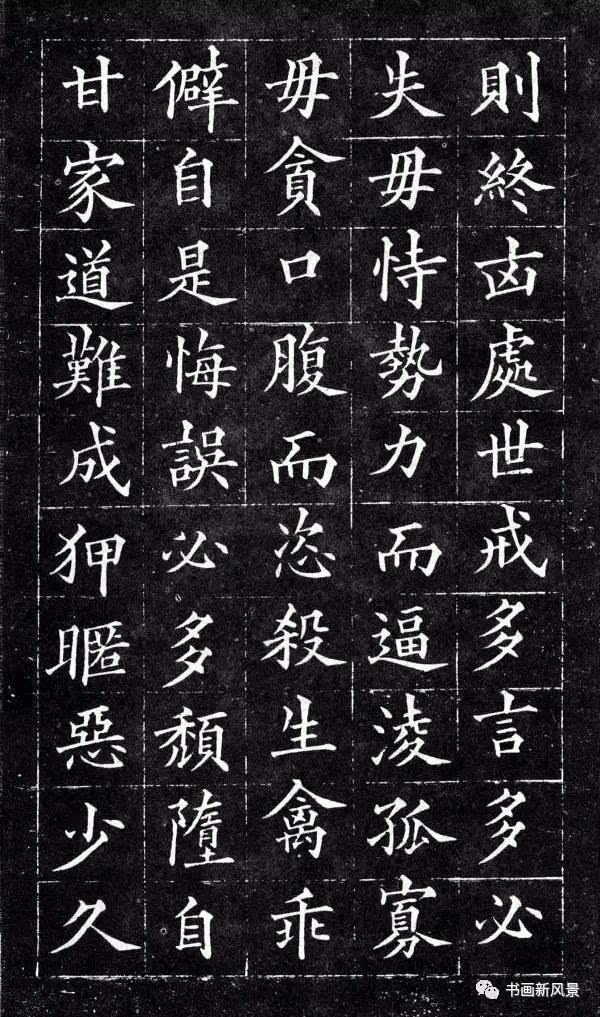 則終凶處世戒多言多必
失毋恃勢力而逼凌孤寡
毋貪口腹而恣殺生禽乖
僻自是悔誤必多頹隳自
甘家道難成狎暱惡少久
书画新风景